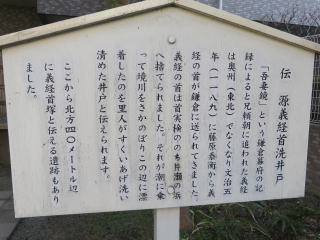 伝 源義経首洗井戸
「吾妻鏡」という鎌倉幕府の記
録によると兄頼朝に追われた義経
は奥州(東北)でなくなり文治五
年(一一八九)に藤原泰衡から義
経の首が鎌倉に送られてきました。
義経の首は首実検ののち片瀬の浜
へ捨てられました。それが潮に乗
って境川をさかのぼりこの辺に漂
着したのを里人がすくいあげ洗い
清めた井戸と伝えられます。
ここから北方四〇メートル辺
に義経首塚と伝える遺跡もあり
ました。